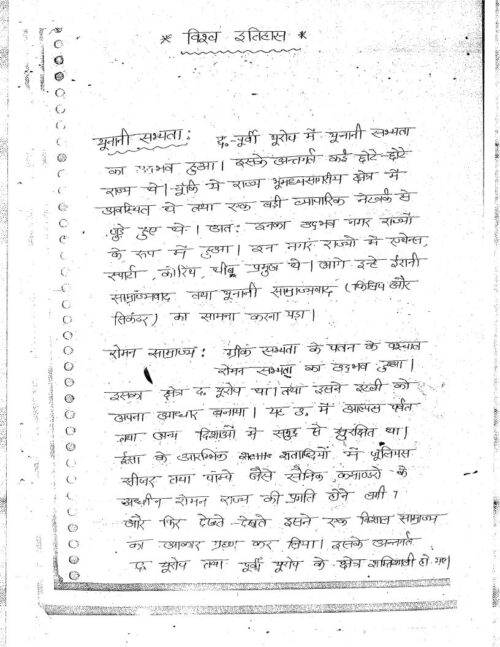 * विश्व इतिहास *
यूनानी सभ्यता : द.-पूर्वी यूरोप में यूनानी सभ्यता
का उद्भव हुआ। इसके अन्तर्गत कई छोटे-छोटे
राज्य थे। चूंकि ये राज्य भूमध्यसागरीय क्षेत्र में
अवस्थित थे तथा एक बड़ी व्यापारिक नेटवर्क से
जुड़े हुए थे। अतः इनका उद्भव नगर राज्यों
के रूप में हुआ। इन नगर राज्यों में एथेन्स,
स्पार्टा, कोरिंथ, थीब्स प्रमुख थे। आगे इन्हें ईरानी
साम्राज्यवाद तथा यूनानी साम्राज्यवाद (फिलिप और
सिकंदर) का सामना करना पड़ा।
रोमन साम्राज्य : ग्रीक सभ्यता के पतन के पश्चात
रोमन सभ्यता का उद्भव हुआ।
इसका क्षेत्र द. यूरोप था। तथा इसने इटली को
अपना आधार बनाया। यह उ. में आल्पस पर्वत
तथा अन्य दिशाओं में समुद्र से सुरक्षित था।
ईसा के आरम्भिक शताब्दियों में जूलियस
सीजर तथा पाम्पे जैसे सैनिक कमाण्डरों के
अधीन रोमन राज्य की प्रगति होने लगी
और फिर देखते-देखते इसने एक विशाल साम्राज्य
का आकार ग्रहण कर लिया। इसके अन्तर्गत
द. यूरोप तथा पूर्वी यूरोप के क्षेत्र शामिल हो गए।